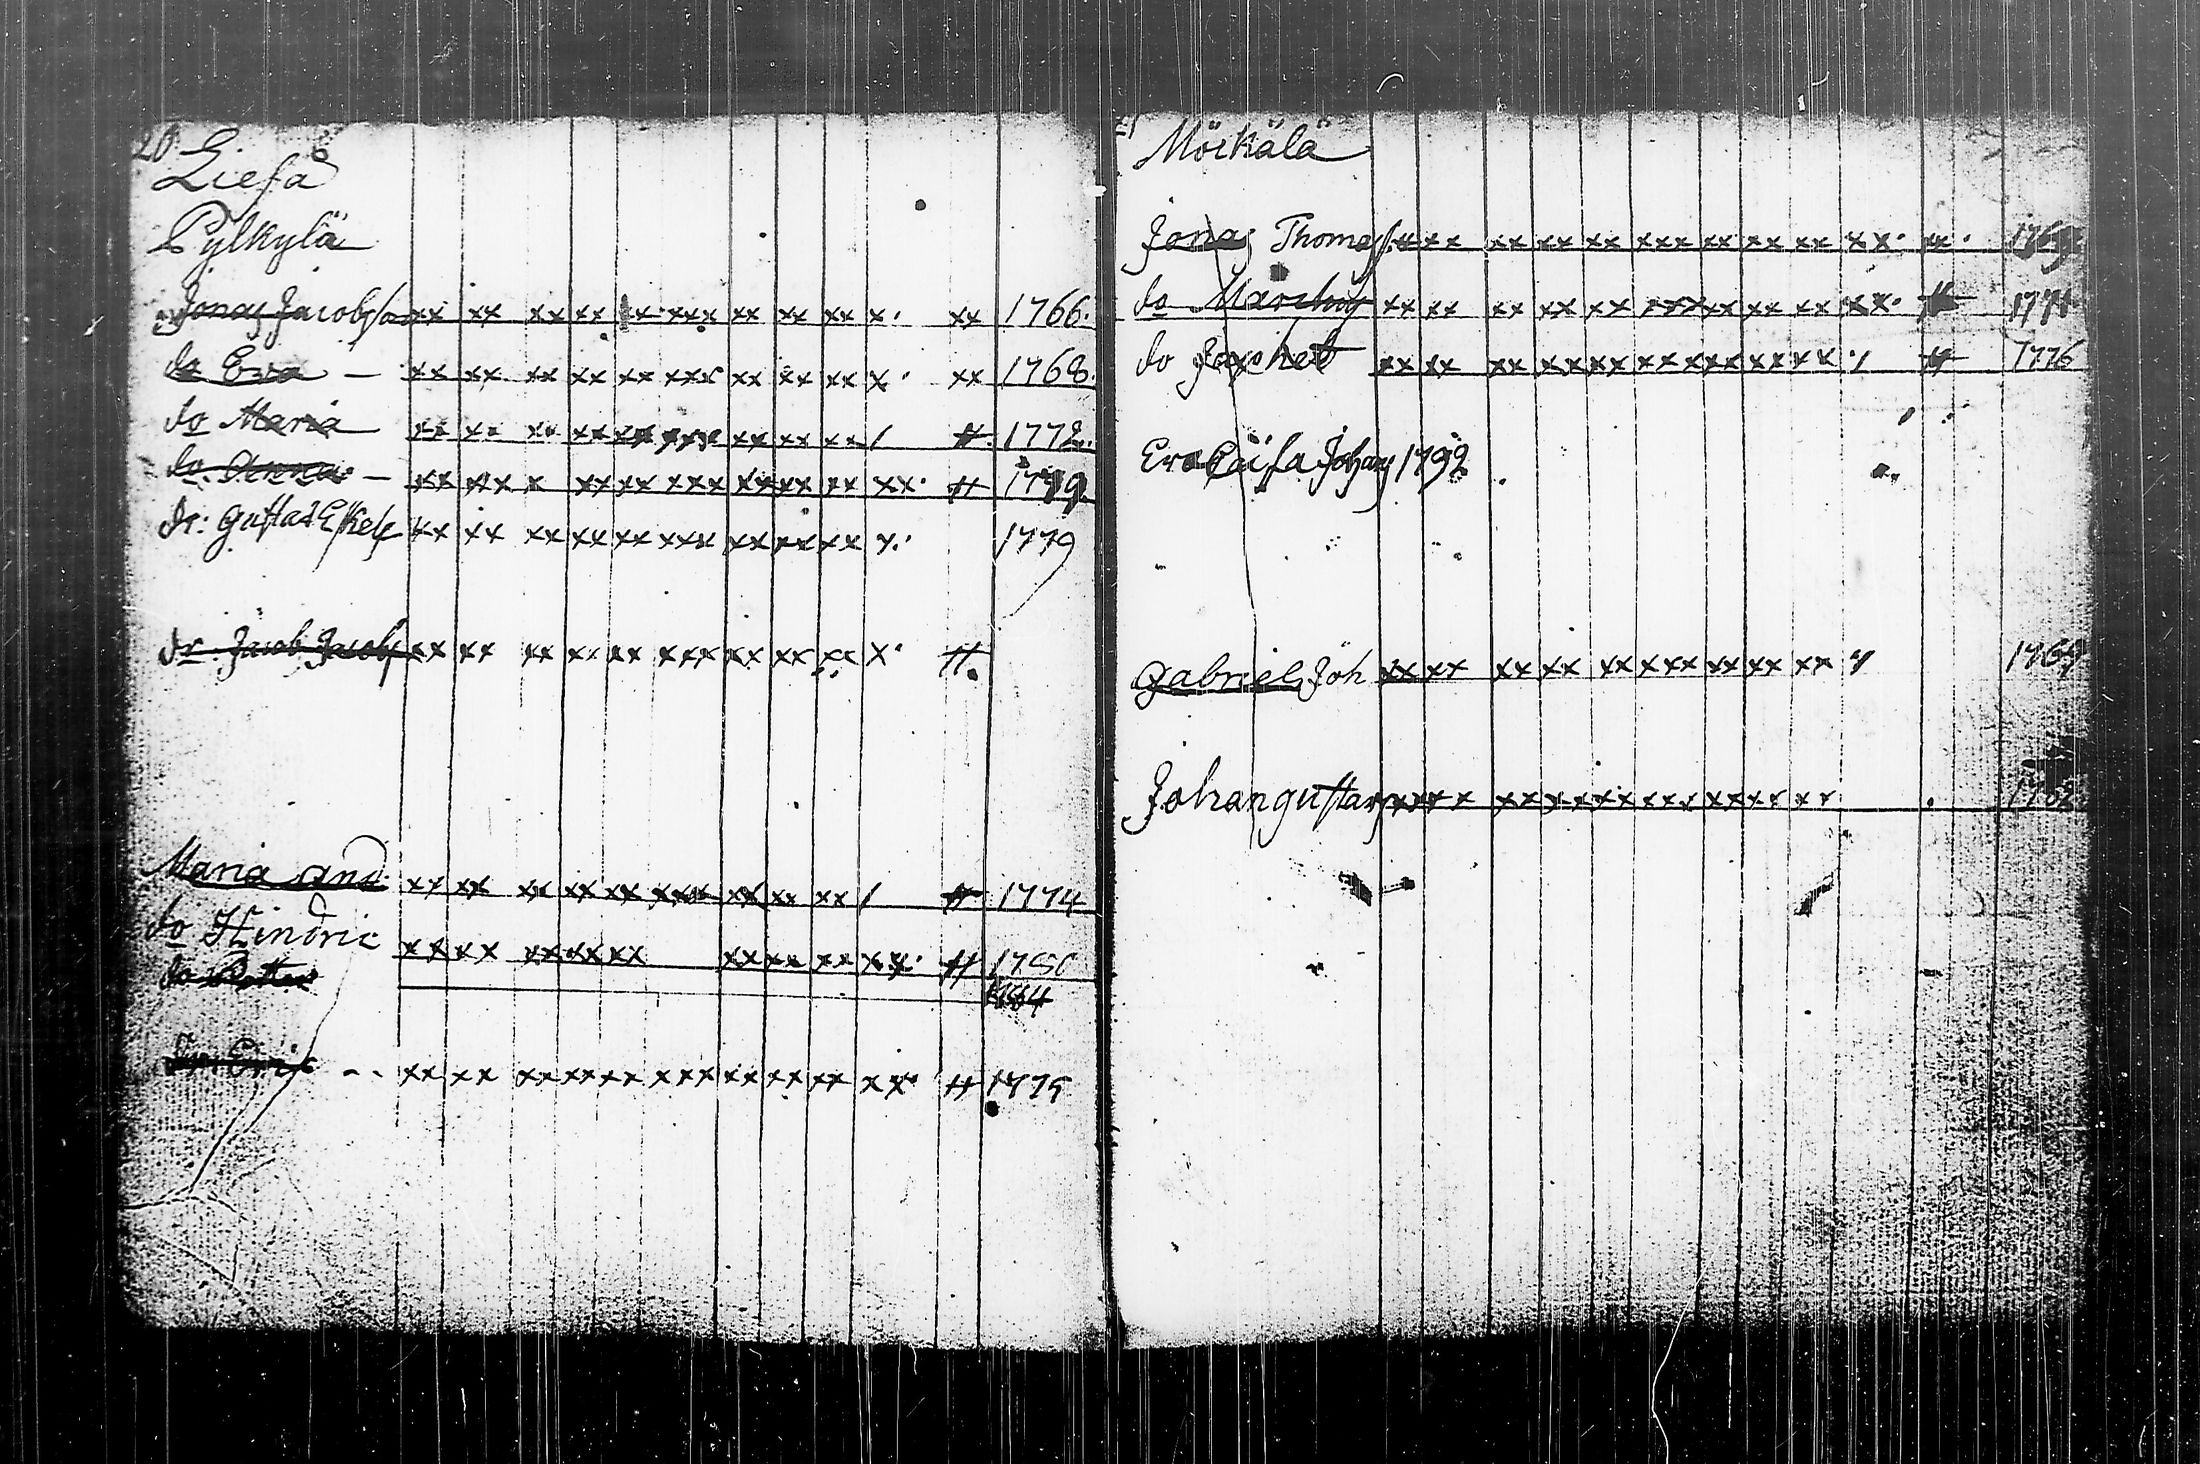 20
Liesa
Pylkylä
Jonas Jacobss xx xx xx xx xx xxx xx xx xx x. xx 1766.
do Eva — xx xx xx xx xx xxx xx xx xx x. xx 1768.
do Maria xx xx xx xx xx xxx xx xx xx / # 1772.
do Anna — xx xx x xx xx xxx xx xx xx xx. #
dr: Gustaf Eskels xx xx xx xx xx xxx xx xx xx x. 1779
dr. Jacob Jacobs xx xx xx xx xx xxx xx xx xx x. #.
Maria And. xx xx xx xx xx xxx xx xx xx / # 1774
do Hindric xx xx xx xx xx xx xx xx xx. #
do
1784
Eric -- xx xx xx xx xx xxx xx xx xx xx. # 1775
21
Möikälä
Jonas Thomass xx xx xx xx xx xxx xx xx xx xx. xx. 1769
do xx xx xx xx xx xxx xx xx xx xx. # 1771
do xx xx xx xx xx xx xx xx xx # 1776
Johans 1792
Gabriel Joh xx xx xx xx xx xxx xx xx xx
Johan Gustafs xx xx xx xx xx xxx xx xx xx